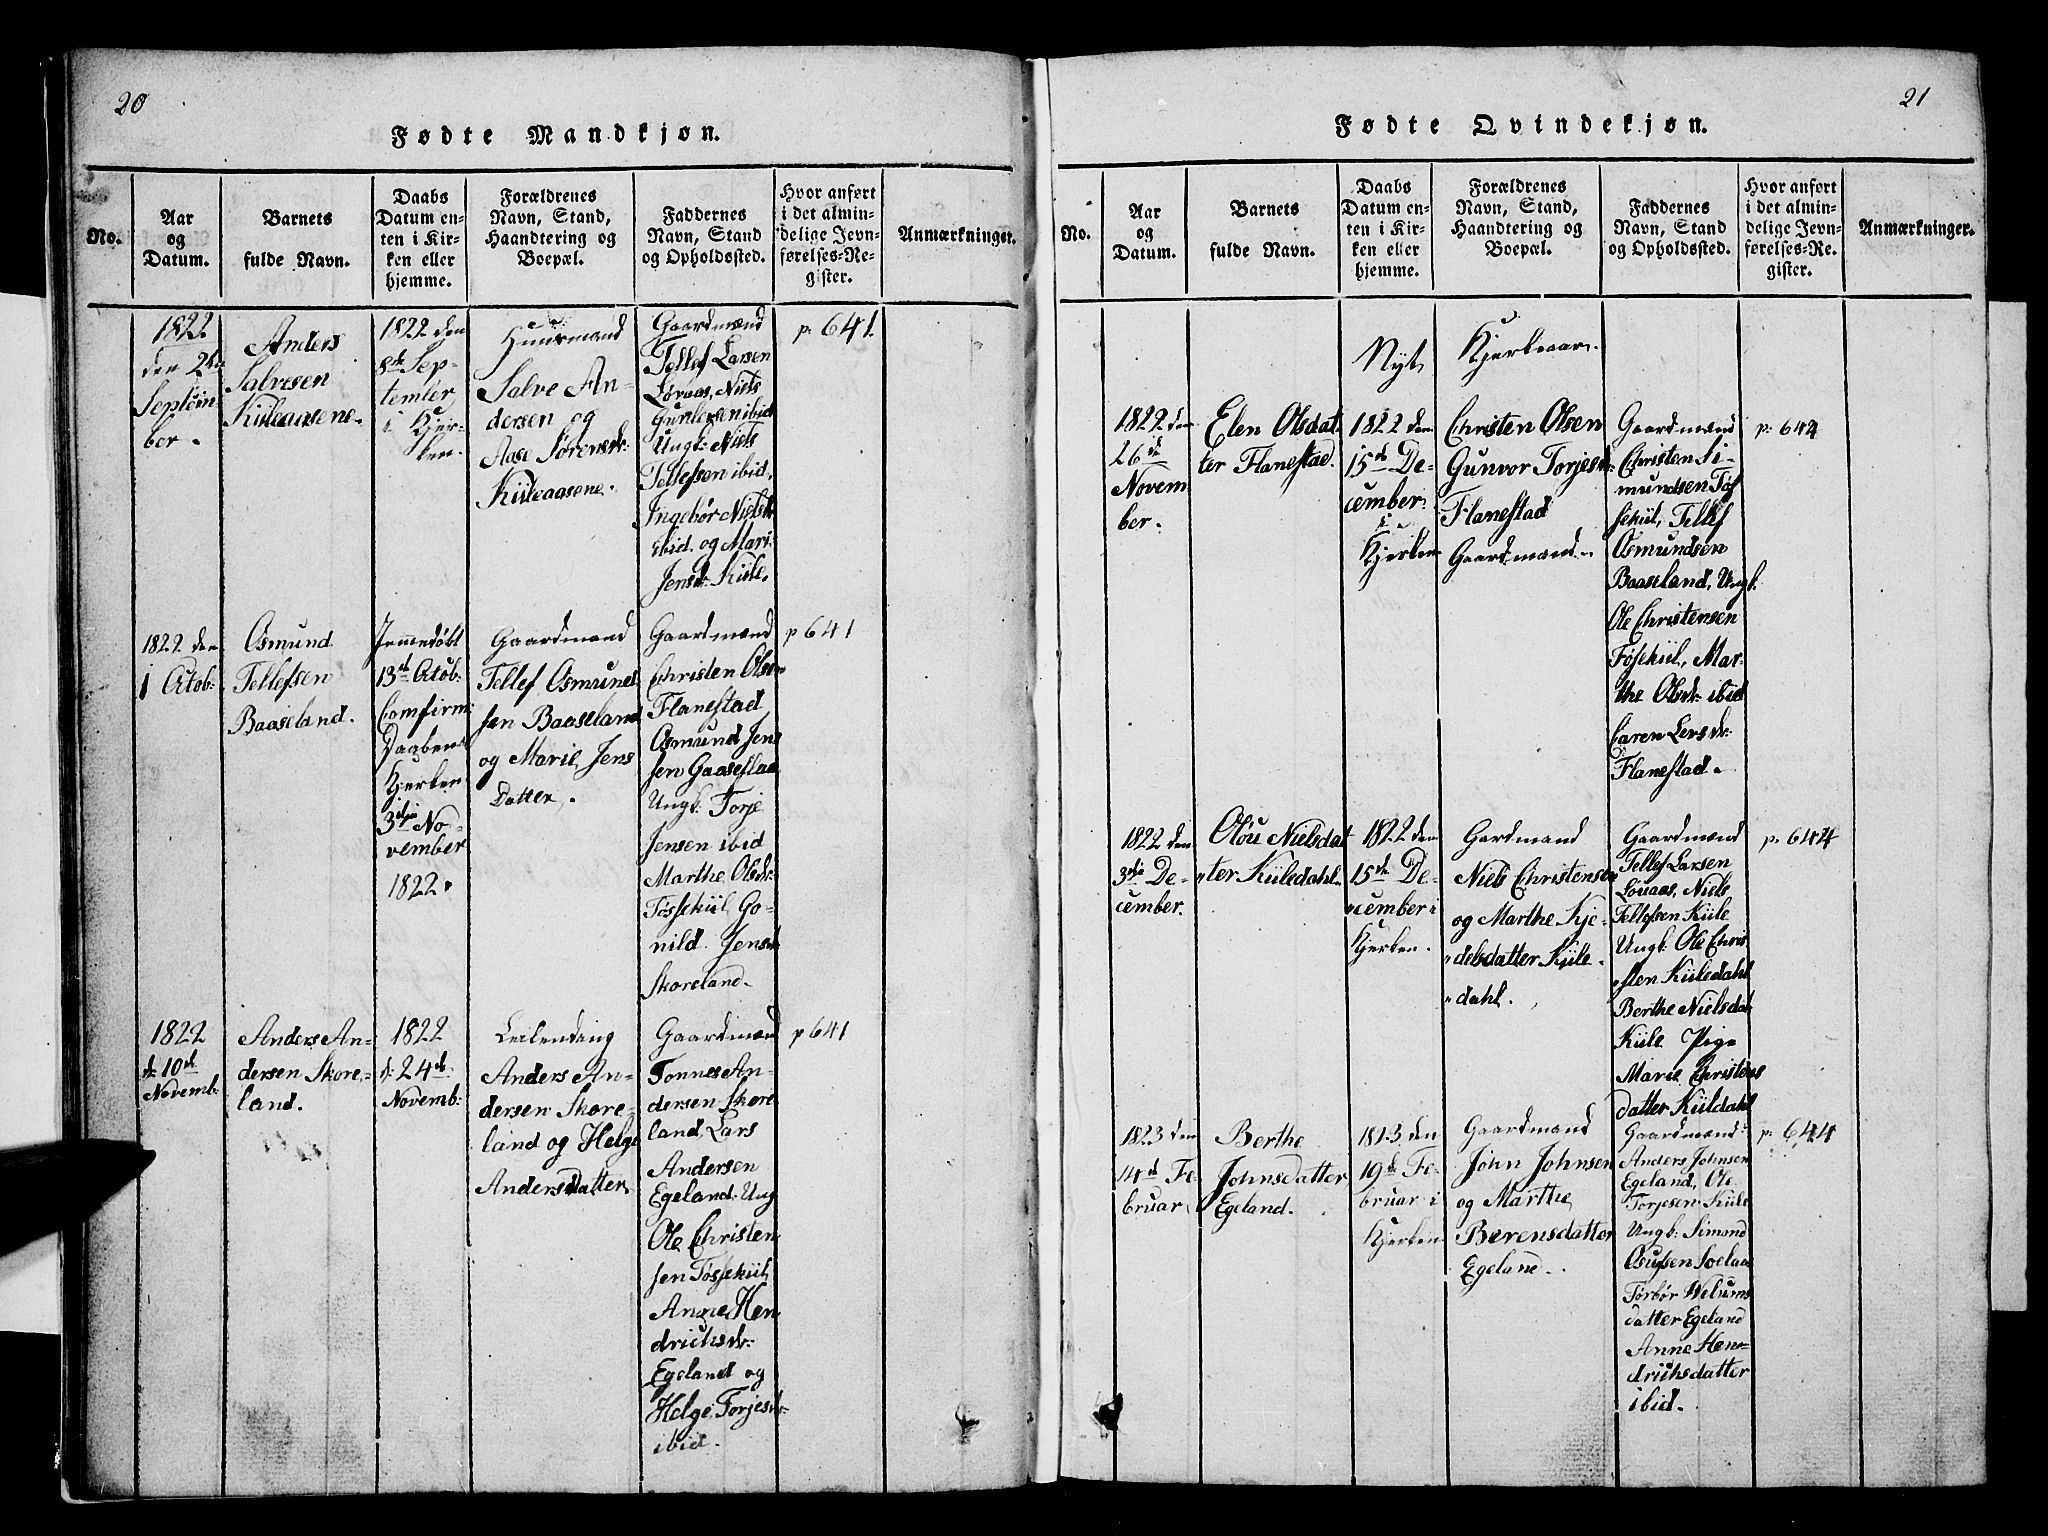 20
Fødte Mandkjøn.
No.
Aar
og
Datum.
Barnets
fulde Navn.
Daabs
Datum en-
ten i Kir-
ken eller
hjemme.
Forældrenes
Navn, Stand,
Haandtering og
Boepæl.
Faddernes
Navn, Stand
og Opholdssted.
Hvor anført
i det almin-
delige Jevn-
førelses-Re-
gister.
Anmærkninger.
1822
den 2den
Septem
ber.
Anders
Salvesen
Kiileaasene.
1822 den
8de Sep-
tember,
i Kjer-
ken.
Huusmand
Salve An-
dersen og
Aase Sørensdr
Kiileaasene.
Gaardmænd
Tellef Larsen
Løvaas, Niels
Gunlersen ibid
Ungk: Niels
Tellefsen ibid,
Ingebør Nielsdr
ibid. og Mari
Jensdr Kiile,
p. 641.
1822 den
1 Octob:
Osmund
Tellefsen
Baaseland.
Jemmedøbt
13de Octob:
Comfirm:
Daaben
Kjerken
3die No-
vember
1822.
Gaardmand
Tellef Osmund
sen Baaseland
og Marie Jens
Datter.
Gaardmænd
Christen Olsen
Flanestad,
Osmund Jen
sen Gaaseflaa
Ungk: Torje
Jensen ibid
Marthe Olsdr:
Føssekiil, Go-
nild. Jensdr
Skoreland.
p 641
1822
d: 10de
Novemb:
Anders An-
dersen Skore-
land.
1822
d: 24de
Novemb:
Leilending
Anders An-
dersen Skore-
land og Helge
Andersdatter
Gaardmænd
Tonnes An-
dersen Skore
land, Lars
Andersen
Egeland. Ung
Ole Christen
sen Føssekiil
Anne Hen
drichsdr:
Egeland og
Helge Torjesdr:
ibid.
p 641
21
Fødte Qvindekjøn.
No.
Aar
og
Datum.
Barnets
fulde Navn.
Daabs
Datum en-
ten i Kir-
ken eller
hjemme.
Forældrenes
Navn, Stand,
Haandtering og
Boepæl.
Faddernes
Navn, Stand
og Opholdssted.
Hvor anført
i det almin-
delige Jevn-
førelses-Re-
gister.
Anmærkninger.
Nyt Kjerkeaar.
1822 den
26de
Novem
ber.
Elen Olsdat
ter Flanestad.
1822 den
15de De-
cember
i
Kjerken
Christen Olsen
Gunvor Torjesdr
Flanestad
Gaardmænd.
Gaardmænd
Christen Si-
mundsen Føs
sekiil, Tellef
Osmundsen
Baaseland, Ungk.
Ole Christensen
Føsekiil, Mar-
the Olsdr: ibid
Caren Lersdr:
Flanestad.
p: 644
1822 den
3die De-
cember.
Olou Nielsdat
ter Kiiledahl.
1822 den
15de De-
cember i
Kjerken.
Gardmand
Niels Christensen
og Marthe Kje-
delsdatter Kiile-
dahl.
Gaardmænd
Tellef Larsen
Louaas, Niels
Tellefsen Kiile
Ungk: Ole Chris
sten Kiiledahl
Berthe Nielsdat
Kiile Pige
Marie Christens
datter Kiildahl
p. 644
1823 den
14de Fe
bruar
Berthe
Johnsdatter
Egeland.
1823 den
19de Fe-
bruar i
Kjerken
Gaardmand
John Johnsen
og Marthe
Berensdatter
Egeland.
Gaardmænd:
Anders Johnsen
Egeland, Ole
Torjesen Kiile
Ungk: Simond
Osufsen Soelaa
Tørbør Welums
datter Egeland
Anne Hen-
drichsdatter
ibid.
p: 644